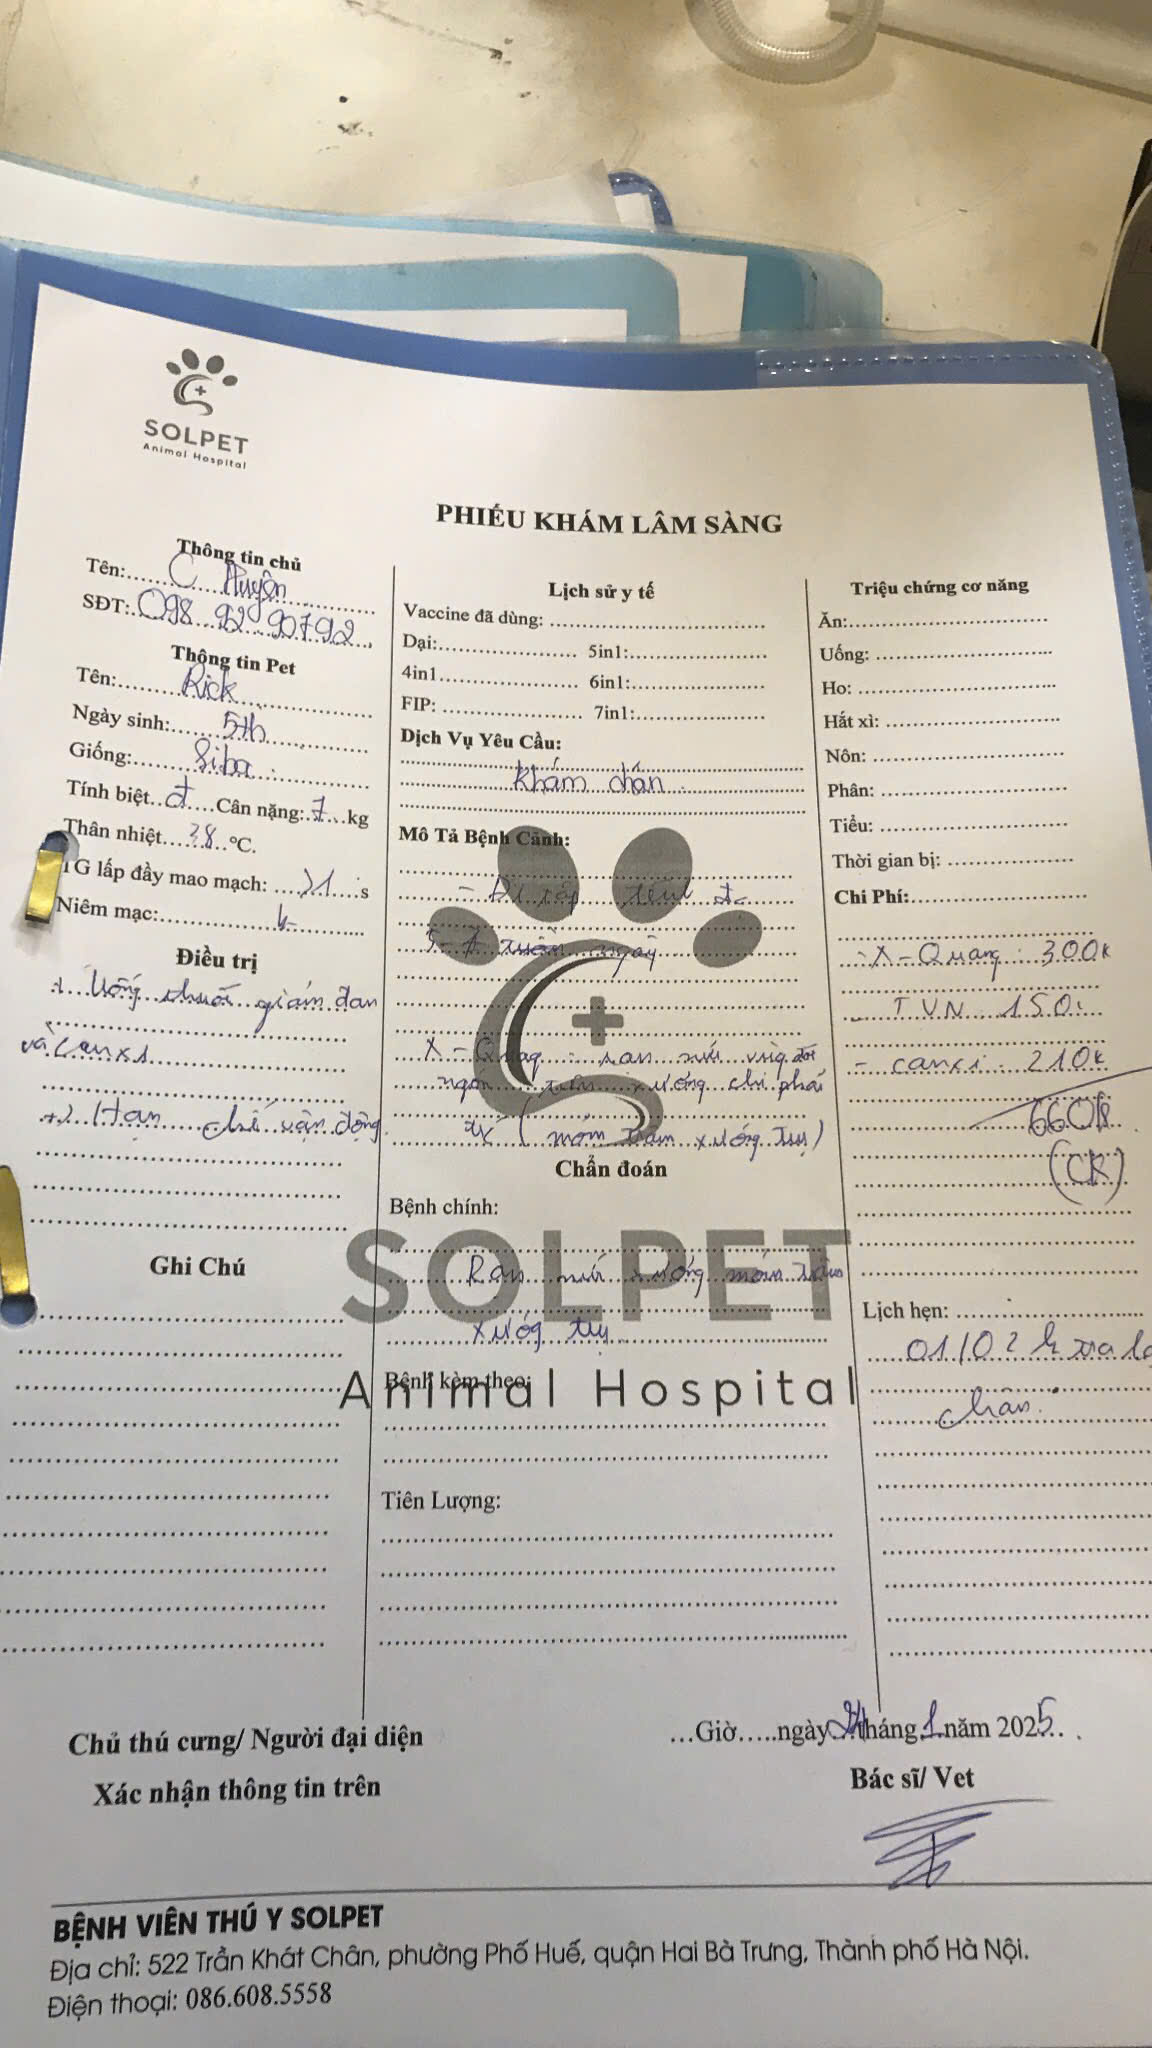 SOLPET
Animal Hospital
PHIẾU KHÁM LÂM SÀNG
Thông tin chủ
Tên: C Huyền
SĐT: 098 92 90792
Thông tin Pet
Tên: Rick
Ngày sinh: 5th
Giống: Siba
Tính biệt đ Cân nặng: 7 kg
Thân nhiệt 38 °C.
TG lấp đầy mao mạch: >1 s
Niêm mạc:
Điều trị
Uống thuốc giảm đau
và canxi
Hạn chế vận động
Ghi Chú
Lịch sử y tế
Vaccine đã dùng:
Dại: 5in1:
4in1 6in1:
FIP: 7in1:
Dịch Vụ Yêu Cầu:
Khám chân
Mô Tả Bệnh Cảnh:
- Đi
ngày
X-Quang: rạn nứt vùng
xương chi phải
(mỏm trâm xương trụ)
Chẩn đoán
Bệnh chính:
Rạn nứt xương mỏm trâm
xương trụ
SOLPET
Animal Hospital
Bệnh kèm theo:
Tiên Lượng:
Triệu chứng cơ năng
Ăn:
Uống:
Ho:
Hắt xì:
Nôn:
Phân:
Tiểu:
Thời gian bị:
Chi Phí:
- X-Quang: 300k
- T.V.N 150
- canxi: 210k
660k
(CK)
Lịch hẹn:
01/02 k tra lạ
chân
Chủ thú cưng/ Người đại diện
Xác nhận thông tin trên
...Giờ.....ngày 24 tháng 1 năm 2025
Bác sĩ/ Vet
BỆNH VIỆN THÚ Y SOLPET
Địa chỉ: 522 Trần Khát Chân, phường Phố Huế, quận Hai Bà Trưng, Thành phố Hà Nội.
Điện thoại: 086.608.5558